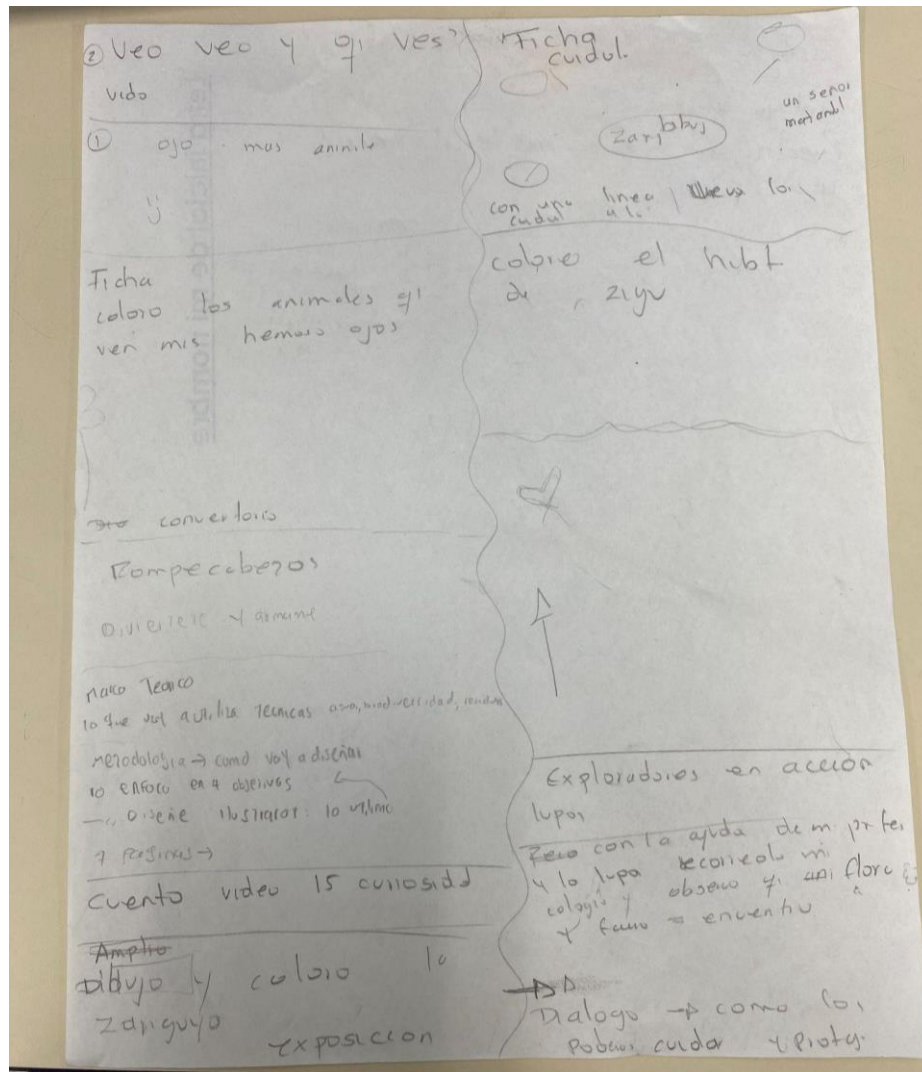 ② Veo veo y qi ves?
vido
① ojo mas
Ficha
coloro los animales qi
ven mis hemosos ojos
convertorio
Rompecabezas
Diviertete y armame
Marco Teorico
lo que voy a utiliza Tecnicas
Metodologia → como voy a diseñar
lo enfoco en 4 objetivos
Diseñe ilustrator: lo ultimo
7 Paginas →
Cuento video 15 curiosidd
Amplio
Dibujo y coloro la
zariguya
exposicion
Ficha
cuidul.
un señor
con una linea
colore el hibt
de zigu
Exploradores en acción
lupas
con la ayuda de m
y la lupa recorredo mi
colegio y observo qi
y encuentro
Dialogo → como los
podemos cuidar y protg.